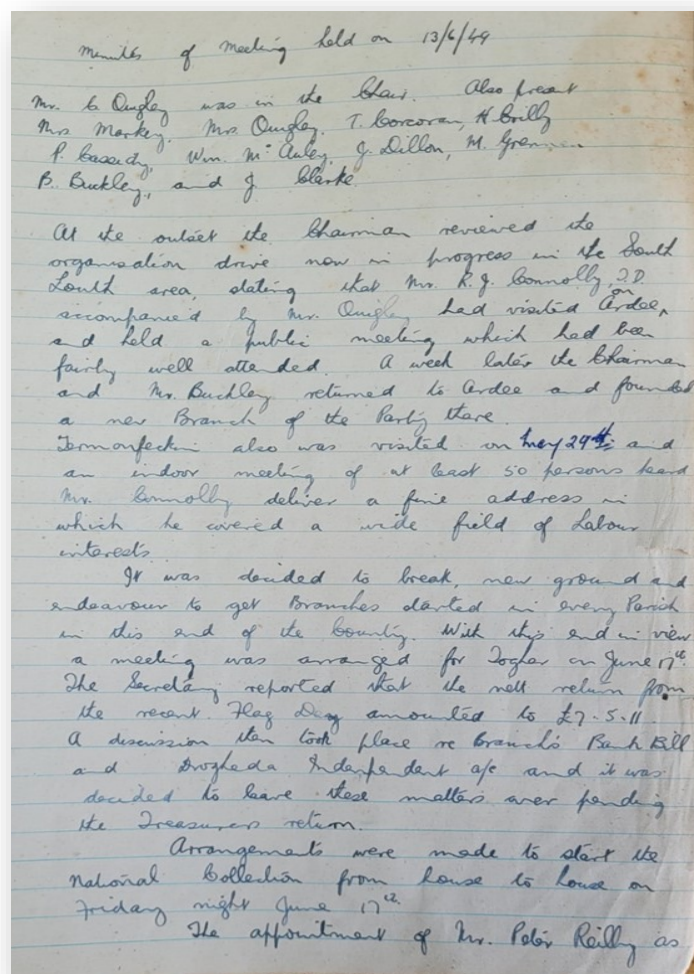 Minutes of Meeting held on 13/6/49
Mr. C Quigley was in the Chair. Also present
Mrs Markey, Mrs Quigley, T. Corcoran, H Crilly
P. Cassidy, Wm. McAuley, J. Dillon, M. Grennan
B. Buckley, and J Clarke
At the outset the Chairman reviewed the
organisation drive now in progress in the South
Louth area, stating that Mr. R. J. Connolly, T.D.
accompanied by Mr. Quigley had visited Ardee, on
and held a public meeting which had been
fairly well attended. A week later the Chairman
and Mr. Buckley returned to Ardee and founded
a new Branch of the Party there.
Termonfeckin also was visited on May 29th and
an indoor meeting of at least 50 persons heard
Mr. Connolly deliver a fine address in
which he covered a wide field of Labour
interests
It was decided to break, new ground and
endeavour to get Branches started in every Parish
in this end of the County. With this end in view
a meeting was arranged for Togher on June 17th.
The Secretary reported that the nett return from
the recent Flag Day amounted to £7-5-11.
A discussion then took place re Branch's Bank Bill
and Drogheda Independent a/c and it was
decided to leave these matters over pending
the Treasurers return.
Arrangements were made to start the
National Collection from house to house on
Friday night June 17th.
The appointment of Mr. Peter Reilly as